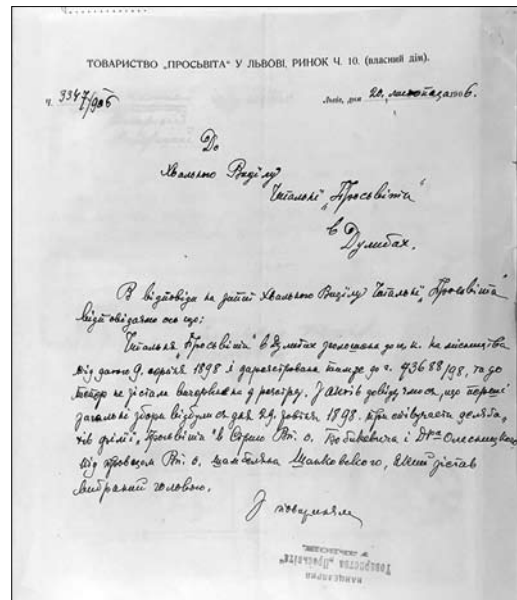 ТОВАРИСТВО „ПРОСЬВІТА" У ЛЬВОВІ, РИНОК Ч. 10. (власний дім).
ч. 3347/906 Львів, дня 20. листопада 1906.
До
Хвального Виділу
Читальні „Просьвіта"
в
Дулибах.
В відповіди на запит Хвального Виділу Читальні „Просьвіта"
відповідаємо ось що:
Читальня „Просьвіта" в Дулибах зголошена до ц. к. намісництва
під датою 9. серпня 1898 і зареєстрована там до ч. 73688/98, та до
тепер не зістала вичеркнена з реєстру. З актів довідуємося, що перші
загальні збори відбулися дня 29. 1898. при співучасти делєґа-
тів філії „Просьвіта" в Стрию Вп. о. Бобикевича і Дра Олесницкого
під проводом Вп. о. шамбеляна, який зістав
вибраний головою.
З поважанням
КАНЦЕЛЯРИЯ
Товариства „Просьвіта"
у Львові.